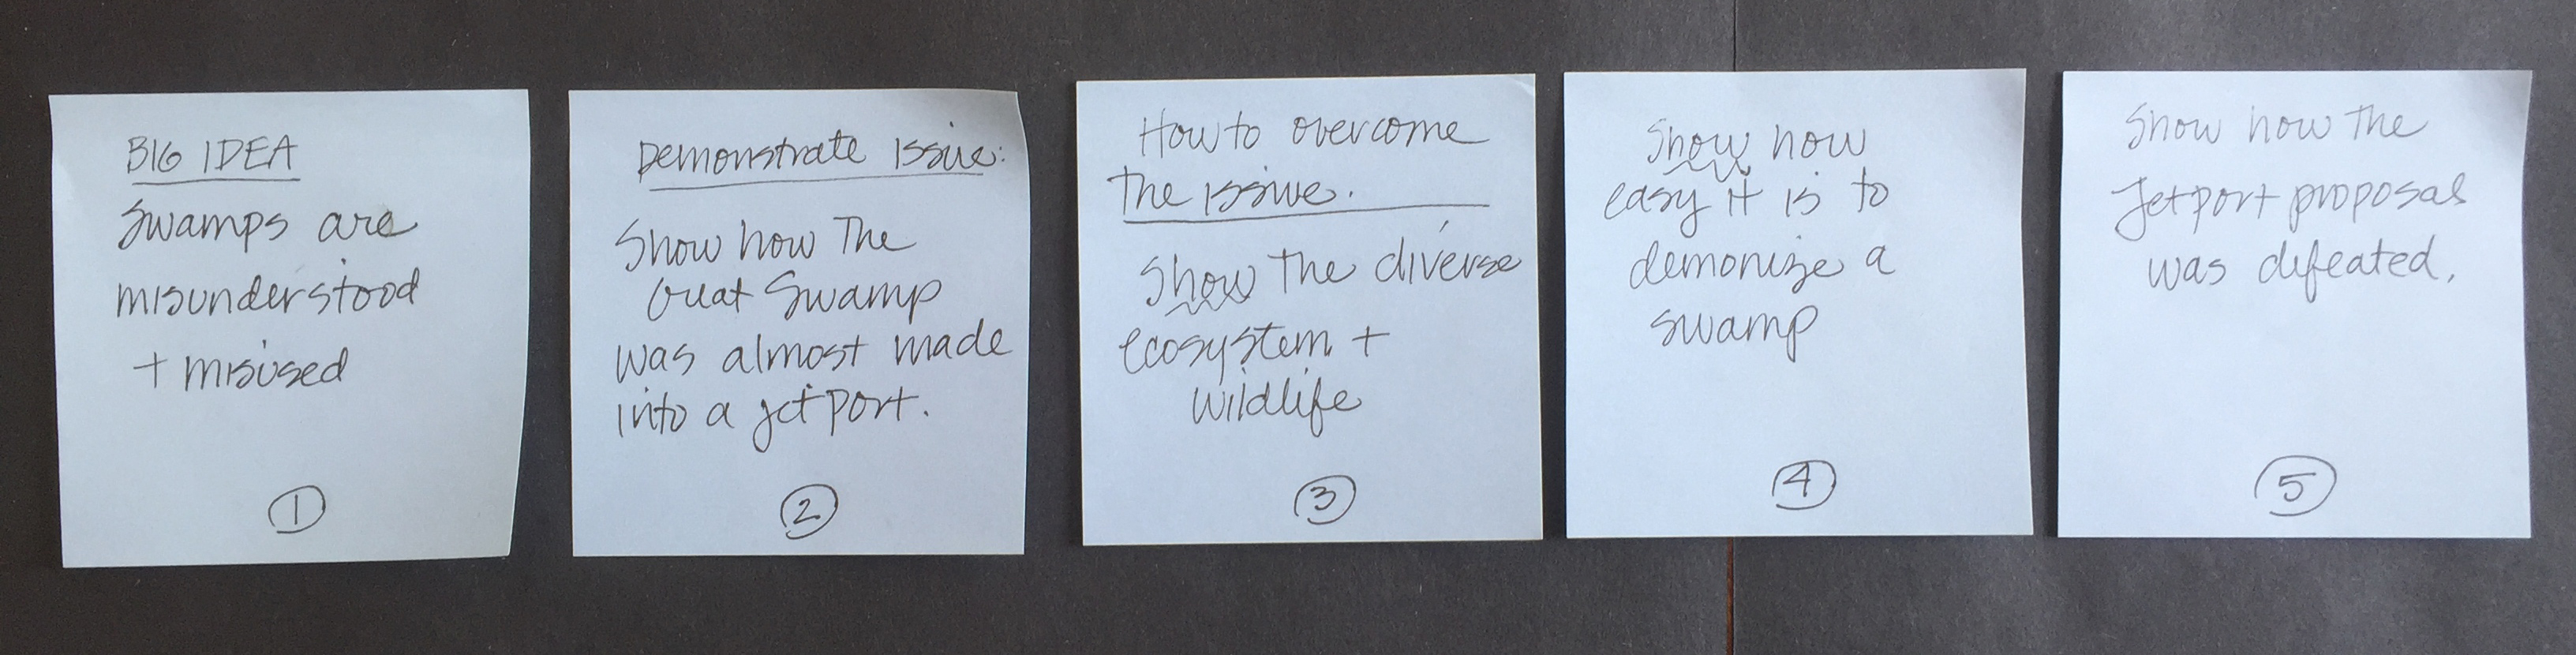 BIG IDEA
Swamps are
misunderstood
+ misused
①
Demonstrate issue:
Show how The
Great Swamp
was almost made
into a jetport.
②
How to overcome
the issue.
Show the diverse
ecosystem +
wildlife
③
Show how
easy it is to
demonize a
swamp
④
Show how the
Jetport proposal
was defeated.
⑤